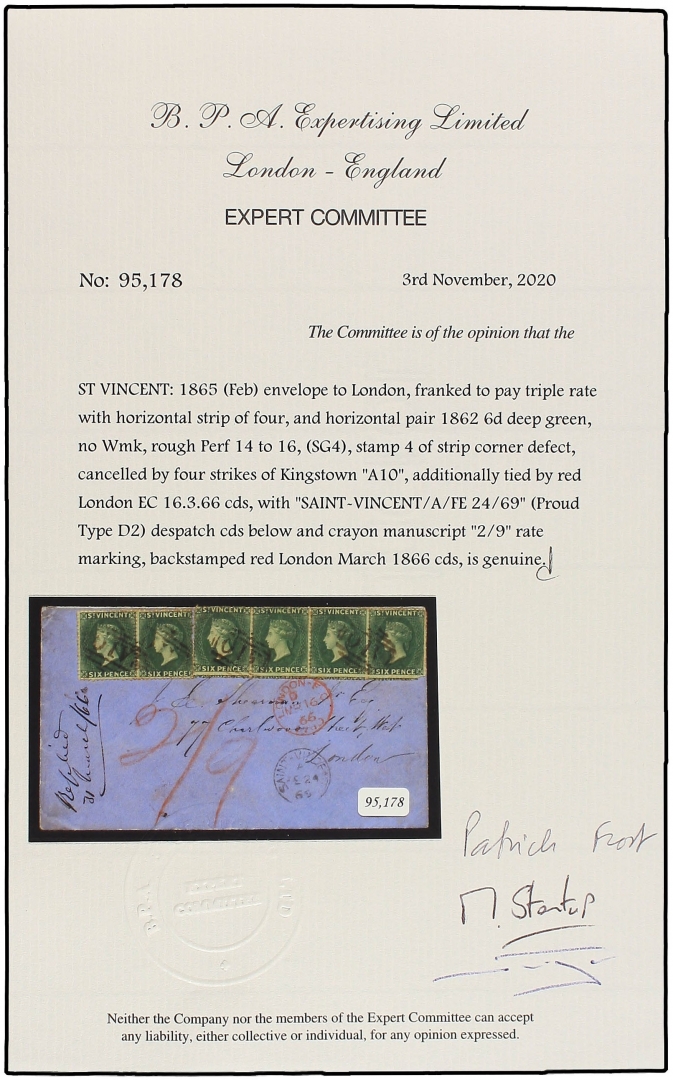 B. P. A. Expertising Limited
London - England
EXPERT COMMITTEE
No: 95,178
3rd November, 2020
The Committee is of the opinion that the
ST VINCENT: 1865 (Feb) envelope to London, franked to pay triple rate
with horizontal strip of four, and horizontal pair 1862 6d deep green,
no Wmk, rough Perf 14 to 16, (SG4), stamp 4 of strip corner defect,
cancelled by four strikes of Kingstown "A10", additionally tied by red
London EC 16.3.66 cds, with "SAINT-VINCENT/A/FE 24/69" (Proud
Type D2) despatch cds below and crayon manuscript "2/9" rate
marking, backstamped red London March 1866 cds, is genuine.
ST VINCENT ST VINCENT ST VINCENT ST VINCENT ST VINCENT ST VINCENT
SIX PENCE SIX PENCE SIX PENCE SIX PENCE
A10
Esq
London
2/9
Replied
31 March/66
SAINT-VINCENT
A
FE 24
MR 16
66
95,178
Patrick Frost
M. Startup
B.P.A. LTD
EXPERT
COMMITTEE
Neither the Company nor the members of the Expert Committee can accept
any liability, either collective or individual, for any opinion expressed.